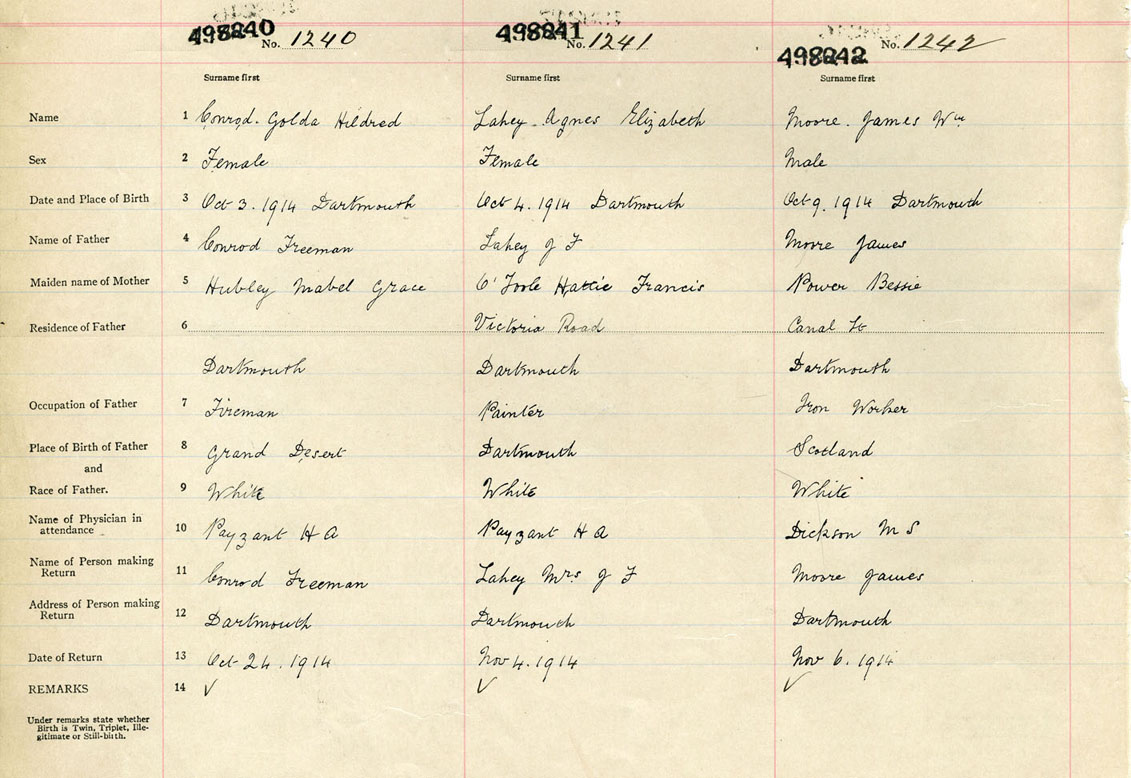 498240 No. 1240 498241 No. 1241 498242 No. 1242
Surname first Surname first Surname first
Name 1 Conrod. Golda Hildred Lahey. Agnes Elizabeth Moore. James Wm
Sex 2 Female Female Male
Date and Place of Birth 3 Oct 3. 1914 Dartmouth Oct 4. 1914 Dartmouth Oct 9. 1914 Dartmouth
Name of Father 4 Conrod Freeman Lahey J F Moore James
Maiden name of Mother 5 Hubley Mabel Grace O'Toole Hattie Francis Power Bessie
Residence of Father 6 Victoria Road Canal St
Dartmouth Dartmouth Dartmouth
Occupation of Father 7 Fireman Painter Iron Worker
Place of Birth of Father 8 Grand Desert Dartmouth Scotland
and
Race of Father. 9 White White White
Name of Physician in
attendance 10 Payzant H A Payzant H A Dickson M S
Name of Person making
Return 11 Conrod Freeman Lahey Mrs J F Moore James
Address of Person making
Return 12 Dartmouth Dartmouth Dartmouth
Date of Return 13 Oct 24. 1914 Nov 4. 1914 Nov 6. 1914
REMARKS 14 ✓ ✓ ✓
Under remarks state whether
Birth is Twin, Triplet, Ille-
gitimate or Still-birth.